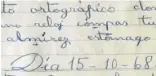 to ortográfico
reloj compas
almirez estómago
Día 15-10-68